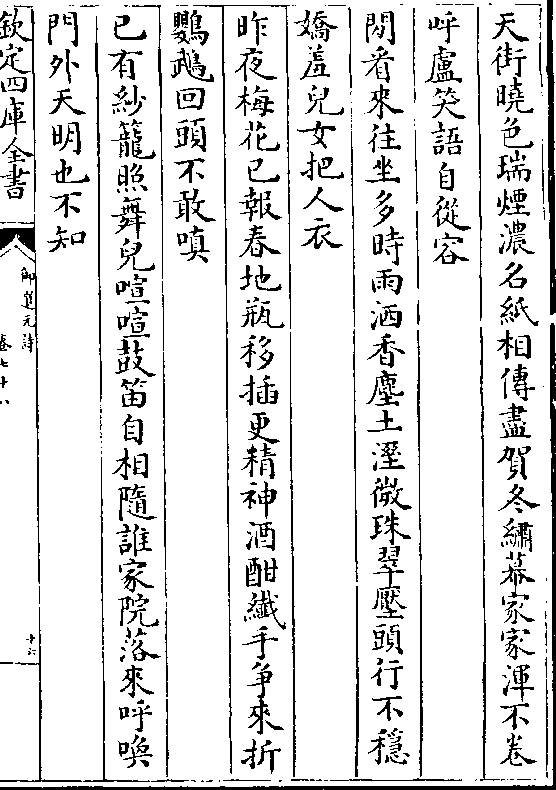 天街曉色瑞煙濃名紙相傳盡賀冬繡幕家家渾不卷
呼盧笑語自從容
閒看來往坐多時雨洒香塵土溼微珠翠壓頭行不穩
嬌羞兒女把人衣
昨夜梅花已報春地瓶移插更精神酒酣纖手爭來折
鸚鵡回頭不敢嗔
已有紗籠照舞兒喧喧鼓笛自相隨誰家院落來呼喚
門外天明也不知
欽定四庫全書
御選元詩
卷七十八
十六